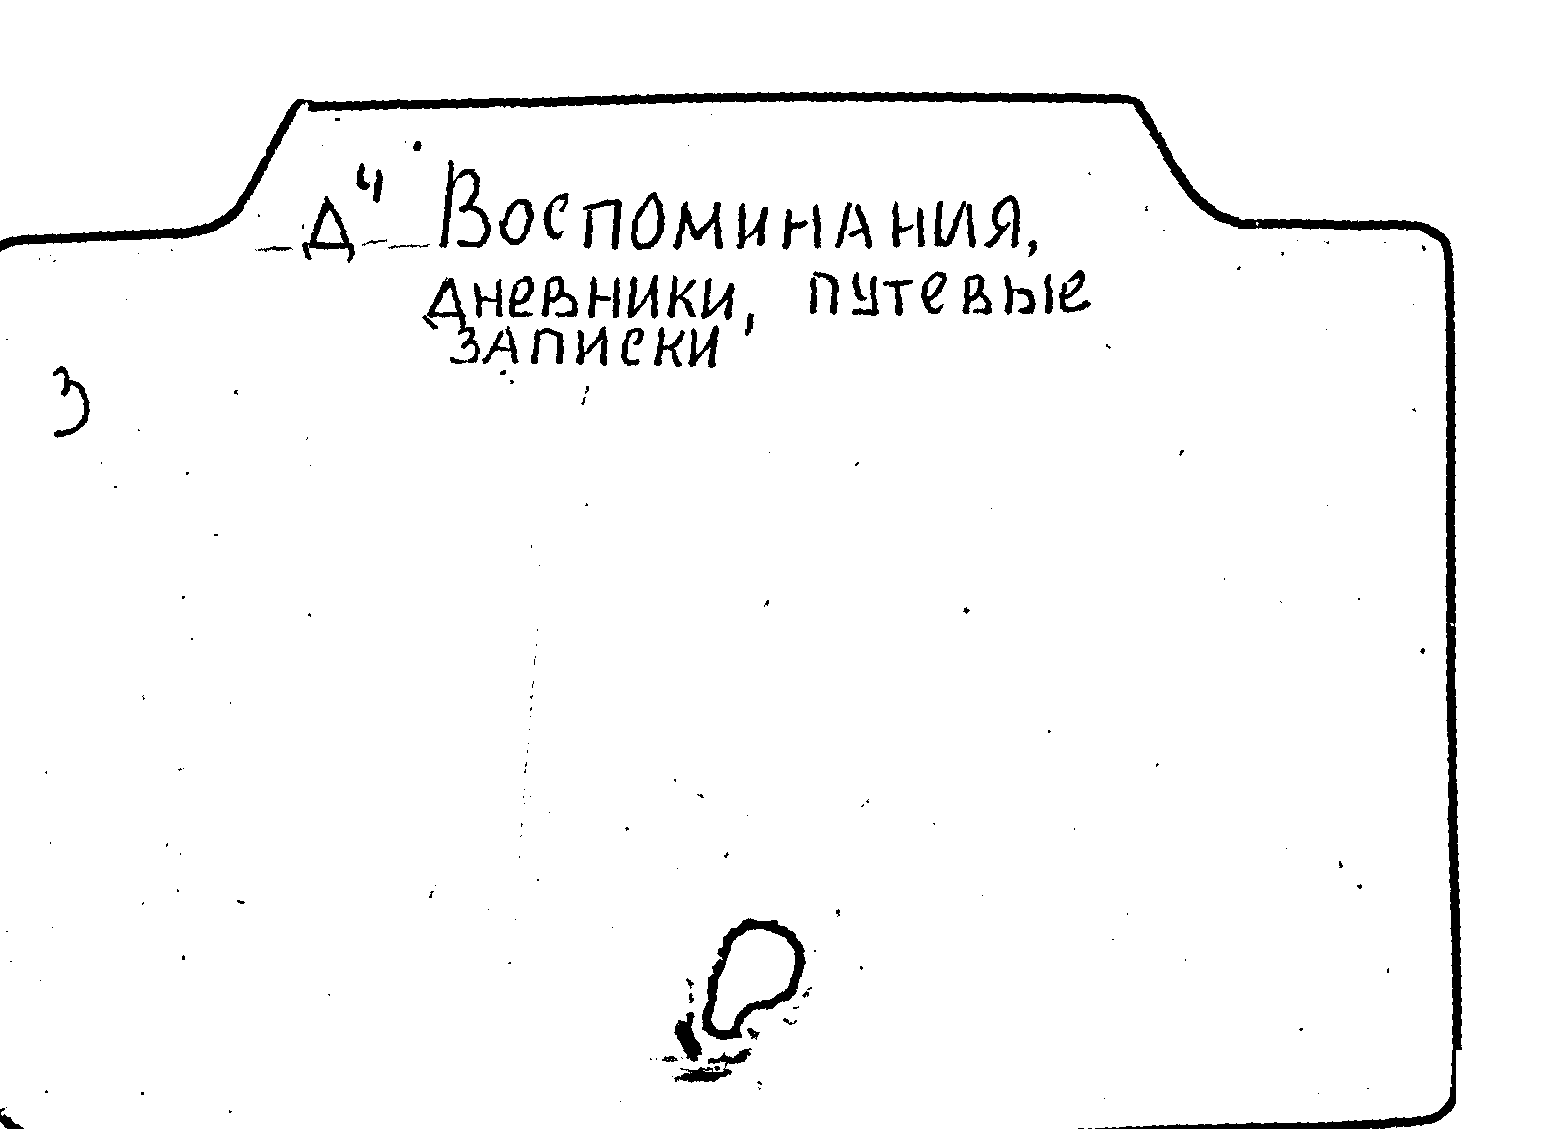 Д" Воспоминания,
дневники, путевые
записки
3